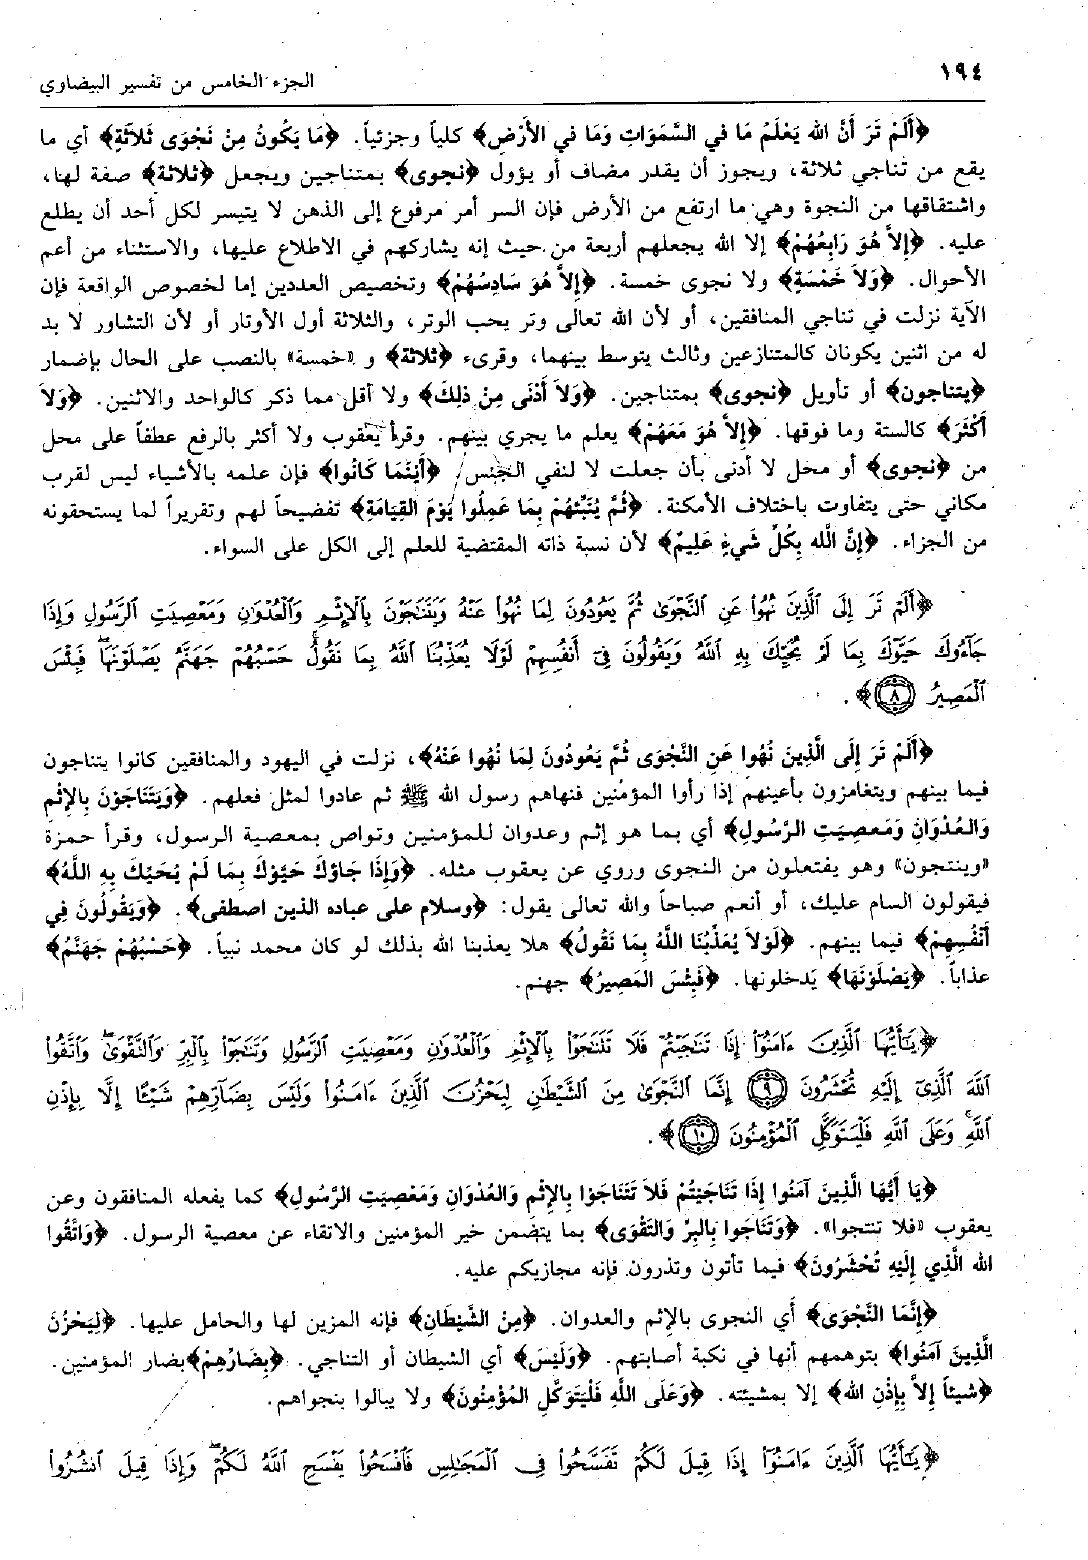 ١٩٤
الجزء الخامس من تفسير البيضاوي
﴿أَلَمْ تَرَ أَنَّ الله يَعْلَمُ مَا في السَّمَوَاتِ وَمَا في الأَرْضِ﴾ كلياً وجزئياً. ﴿مَا يَكُونُ مِنْ نَجْوَى ثَلاَثَةٍ﴾ أي ما
يقع من تناجي ثلاثة، ويجوز أن يقدر مضاف أو يؤول ﴿نجوى﴾ بمتناجين ويجعل ﴿ثلاثة﴾ صفة لها،
واشتقاقها من النجوة وهي ما ارتفع من الأرض فإن السر أمر مرفوع إلى الذهن لا يتيسر لكل أحد أن يطلع
عليه. ﴿إِلاَّ هُوَ رَابِعُهُمْ﴾ إلا الله يجعلهم أربعة من حيث إنه يشاركهم في الاطلاع عليها، والاستثناء من أعم
الأحوال. ﴿وَلاَ خَمْسَةٍ﴾ ولا نجوى خمسة. ﴿إِلاَّ هُوَ سَادِسُهُمْ﴾ وتخصيص العددين إما لخصوص الواقعة فإن
الآية نزلت في تناجي المنافقين، أو لأن الله تعالى وتر يحب الوتر، والثلاثة أول الأوتار أو لأن التشاور لا بد
له من اثنين يكونان كالمتنازعين وثالث يتوسط بينهما، وقرىء ﴿ثلاثة﴾ و «خمسة» بالنصب على الحال بإضمار
﴿يتناجون﴾ أو تأويل ﴿نجوى﴾ بمتناجين. ﴿وَلاَ أَدْنَى مِنْ ذلِكَ﴾ ولا أقل مما ذكر كالواحد والاثنين. ﴿وَلاَ
أَكْثَرَ﴾ كالستة وما فوقها. ﴿إِلاَّ هُوَ مَعَهُمْ﴾ يعلم ما يجري بينهم. وقرأ يعقوب ولا أكثر بالرفع عطفاً على محل
من ﴿نجوى﴾ أو محل لا أدنى بأن جعلت لا لنفي الجنس ﴿أَيْنَمَا كَانُوا﴾ فإن علمه بالأشياء ليس لقرب
مكاني حتى يتفاوت باختلاف الأمكنة. ﴿ثُمَّ يُنَبِّئُهُمْ بِمَا عَمِلُوا يَوْمَ القِيَامَةِ﴾ تفضيحاً لهم وتقريراً لما يستحقونه
من الجزاء. ﴿إِنَّ الله بِكُلِّ شَيءٍ عَلِيمٌ﴾ لأن نسبة ذاته المقتضية للعلم إلى الكل على السواء.
﴿أَلَمْ تَرَ إِلَى ٱلَّذِينَ نُهُوا۟ عَنِ ٱلنَّجْوَىٰ ثُمَّ يَعُودُونَ لِمَا نُهُوا۟ عَنْهُ وَيَتَنَٰجَوْنَ بِٱلْإِثْمِ وَٱلْعُدْوَٰنِ وَمَعْصِيَتِ ٱلرَّسُولِ وَإِذَا
جَآءُوكَ حَيَّوْكَ بِمَا لَمْ يُحَيِّكَ بِهِ ٱللَّهُ وَيَقُولُونَ فِىٓ أَنفُسِهِمْ لَوْلَا يُعَذِّبُنَا ٱللَّهُ بِمَا نَقُولُ ۚ حَسْبُهُمْ جَهَنَّمُ يَصْلَوْنَهَا ۖ فَبِئْسَ
ٱلْمَصِيرُ ⟨٨⟩﴾.
﴿أَلَمْ تَرَ إِلَى الَّذِينَ نُهُوا عَنِ النَّجْوَى ثُمَّ يَعُودُونَ لِمَا نُهُوا عَنْهُ﴾، نزلت في اليهود والمنافقين كانوا يتناجون
فيما بينهم ويتغامزون بأعينهم إذا رأوا المؤمنين فنهاهم رسول الله ﷺ ثم عادوا لمثل فعلهم. ﴿وَيَتَنَاجَوْنَ بِالإِثْمِ
وَالعُدْوَانِ وَمَعصِيَتِ الرَّسُولِ﴾ أي بما هو إثم وعدوان للمؤمنين وتواص بمعصية الرسول، وقرأ حمزة
«وينتجون» وهو يفتعلون من النجوى وروي عن يعقوب مثله. ﴿وَإِذَا جَاؤُكَ حَيَّوْكَ بِمَا لَمْ يُحَيِّكَ بِهِ اللَّهُ﴾
فيقولون السام عليك، أو أنعم صباحاً والله تعالى يقول: ﴿وسلام على عباده الذين اصطفى﴾. ﴿وَيَقُولُونَ فِي
أَنْفُسِهِمْ﴾ فيما بينهم. ﴿لَوْلاَ يُعَذِّبُنَا اللَّهُ بِمَا نَقُولُ﴾ هلا يعذبنا الله بذلك لو كان محمد نبياً. ﴿حَسْبُهُمْ جَهَنَّمُ﴾
عذاباً. ﴿يَصْلَوْنَهَا﴾ يَدخلونها. ﴿فَبِئْسَ المَصِيرُ﴾ جهنم.
﴿يَٰٓأَيُّهَا ٱلَّذِينَ ءَامَنُوٓا۟ إِذَا تَنَٰجَيْتُمْ فَلَا تَتَنَٰجَوْا۟ بِٱلْإِثْمِ وَٱلْعُدْوَٰنِ وَمَعْصِيَتِ ٱلرَّسُولِ وَتَنَٰجَوْا۟ بِٱلْبِرِّ وَٱلتَّقْوَىٰ ۖ وَٱتَّقُوا۟
ٱللَّهَ ٱلَّذِىٓ إِلَيْهِ تُحْشَرُونَ ⟨٩⟩ إِنَّمَا ٱلنَّجْوَىٰ مِنَ ٱلشَّيْطَٰنِ لِيَحْزُنَ ٱلَّذِينَ ءَامَنُوا۟ وَلَيْسَ بِضَآرِّهِمْ شَيْـًٔا إِلَّا بِإِذْنِ
ٱللَّهِ ۚ وَعَلَى ٱللَّهِ فَلْيَتَوَكَّلِ ٱلْمُؤْمِنُونَ ⟨١٠⟩﴾.
﴿يَا أَيُّهَا الَّذِينَ آمَنُوا إِذَا تَنَاجَيتُمْ فَلاَ تَتَنَاجَوْا بِالإِثْمِ وَالعُدْوَانِ وَمَعْصِيَتِ الرَّسُولِ﴾ كما يفعله المنافقون وعن
يعقوب «فلا تنتجوا». ﴿وَتَنَاجَوا بِالبِرِّ وَالتَّقْوَى﴾ بما يتضمن خير المؤمنين والاتقاء عن معصية الرسول. ﴿وَاتَّقُوا
الله الَّذِي إِلَيْهِ تُحْشَرُونَ﴾ فيما تأتون وتذرون فإنه مجازيكم عليه.
﴿إِنَّمَا النَّجْوَى﴾ أي النجوى بالإثم والعدوان. ﴿مِنَ الشَّيْطَانِ﴾ فإنه المزين لها والحامل عليها. ﴿لِيَحْزُنَ
الَّذِينَ آمَنُوا﴾ بتوهمهم أنها في نكبة أصابتهم. ﴿وَلَيْسَ﴾ أي الشيطان أو التناجي. ﴿بِضَارِّهِمْ﴾ بضار المؤمنين.
﴿شيئاً إِلاَّ بِإِذْنِ الله﴾ إلا بمشيئته. ﴿وَعَلَى اللَّهِ فَلْيَتَوَكَّلِ المُؤْمِنُونَ﴾ ولا يبالوا بنجواهم.
﴿يَٰٓأَيُّهَا ٱلَّذِينَ ءَامَنُوٓا۟ إِذَا قِيلَ لَكُمْ تَفَسَّحُوا۟ فِى ٱلْمَجَٰلِسِ فَٱفْسَحُوا۟ يَفْسَحِ ٱللَّهُ لَكُمْ ۖ وَإِذَا قِيلَ ٱنشُزُوا۟